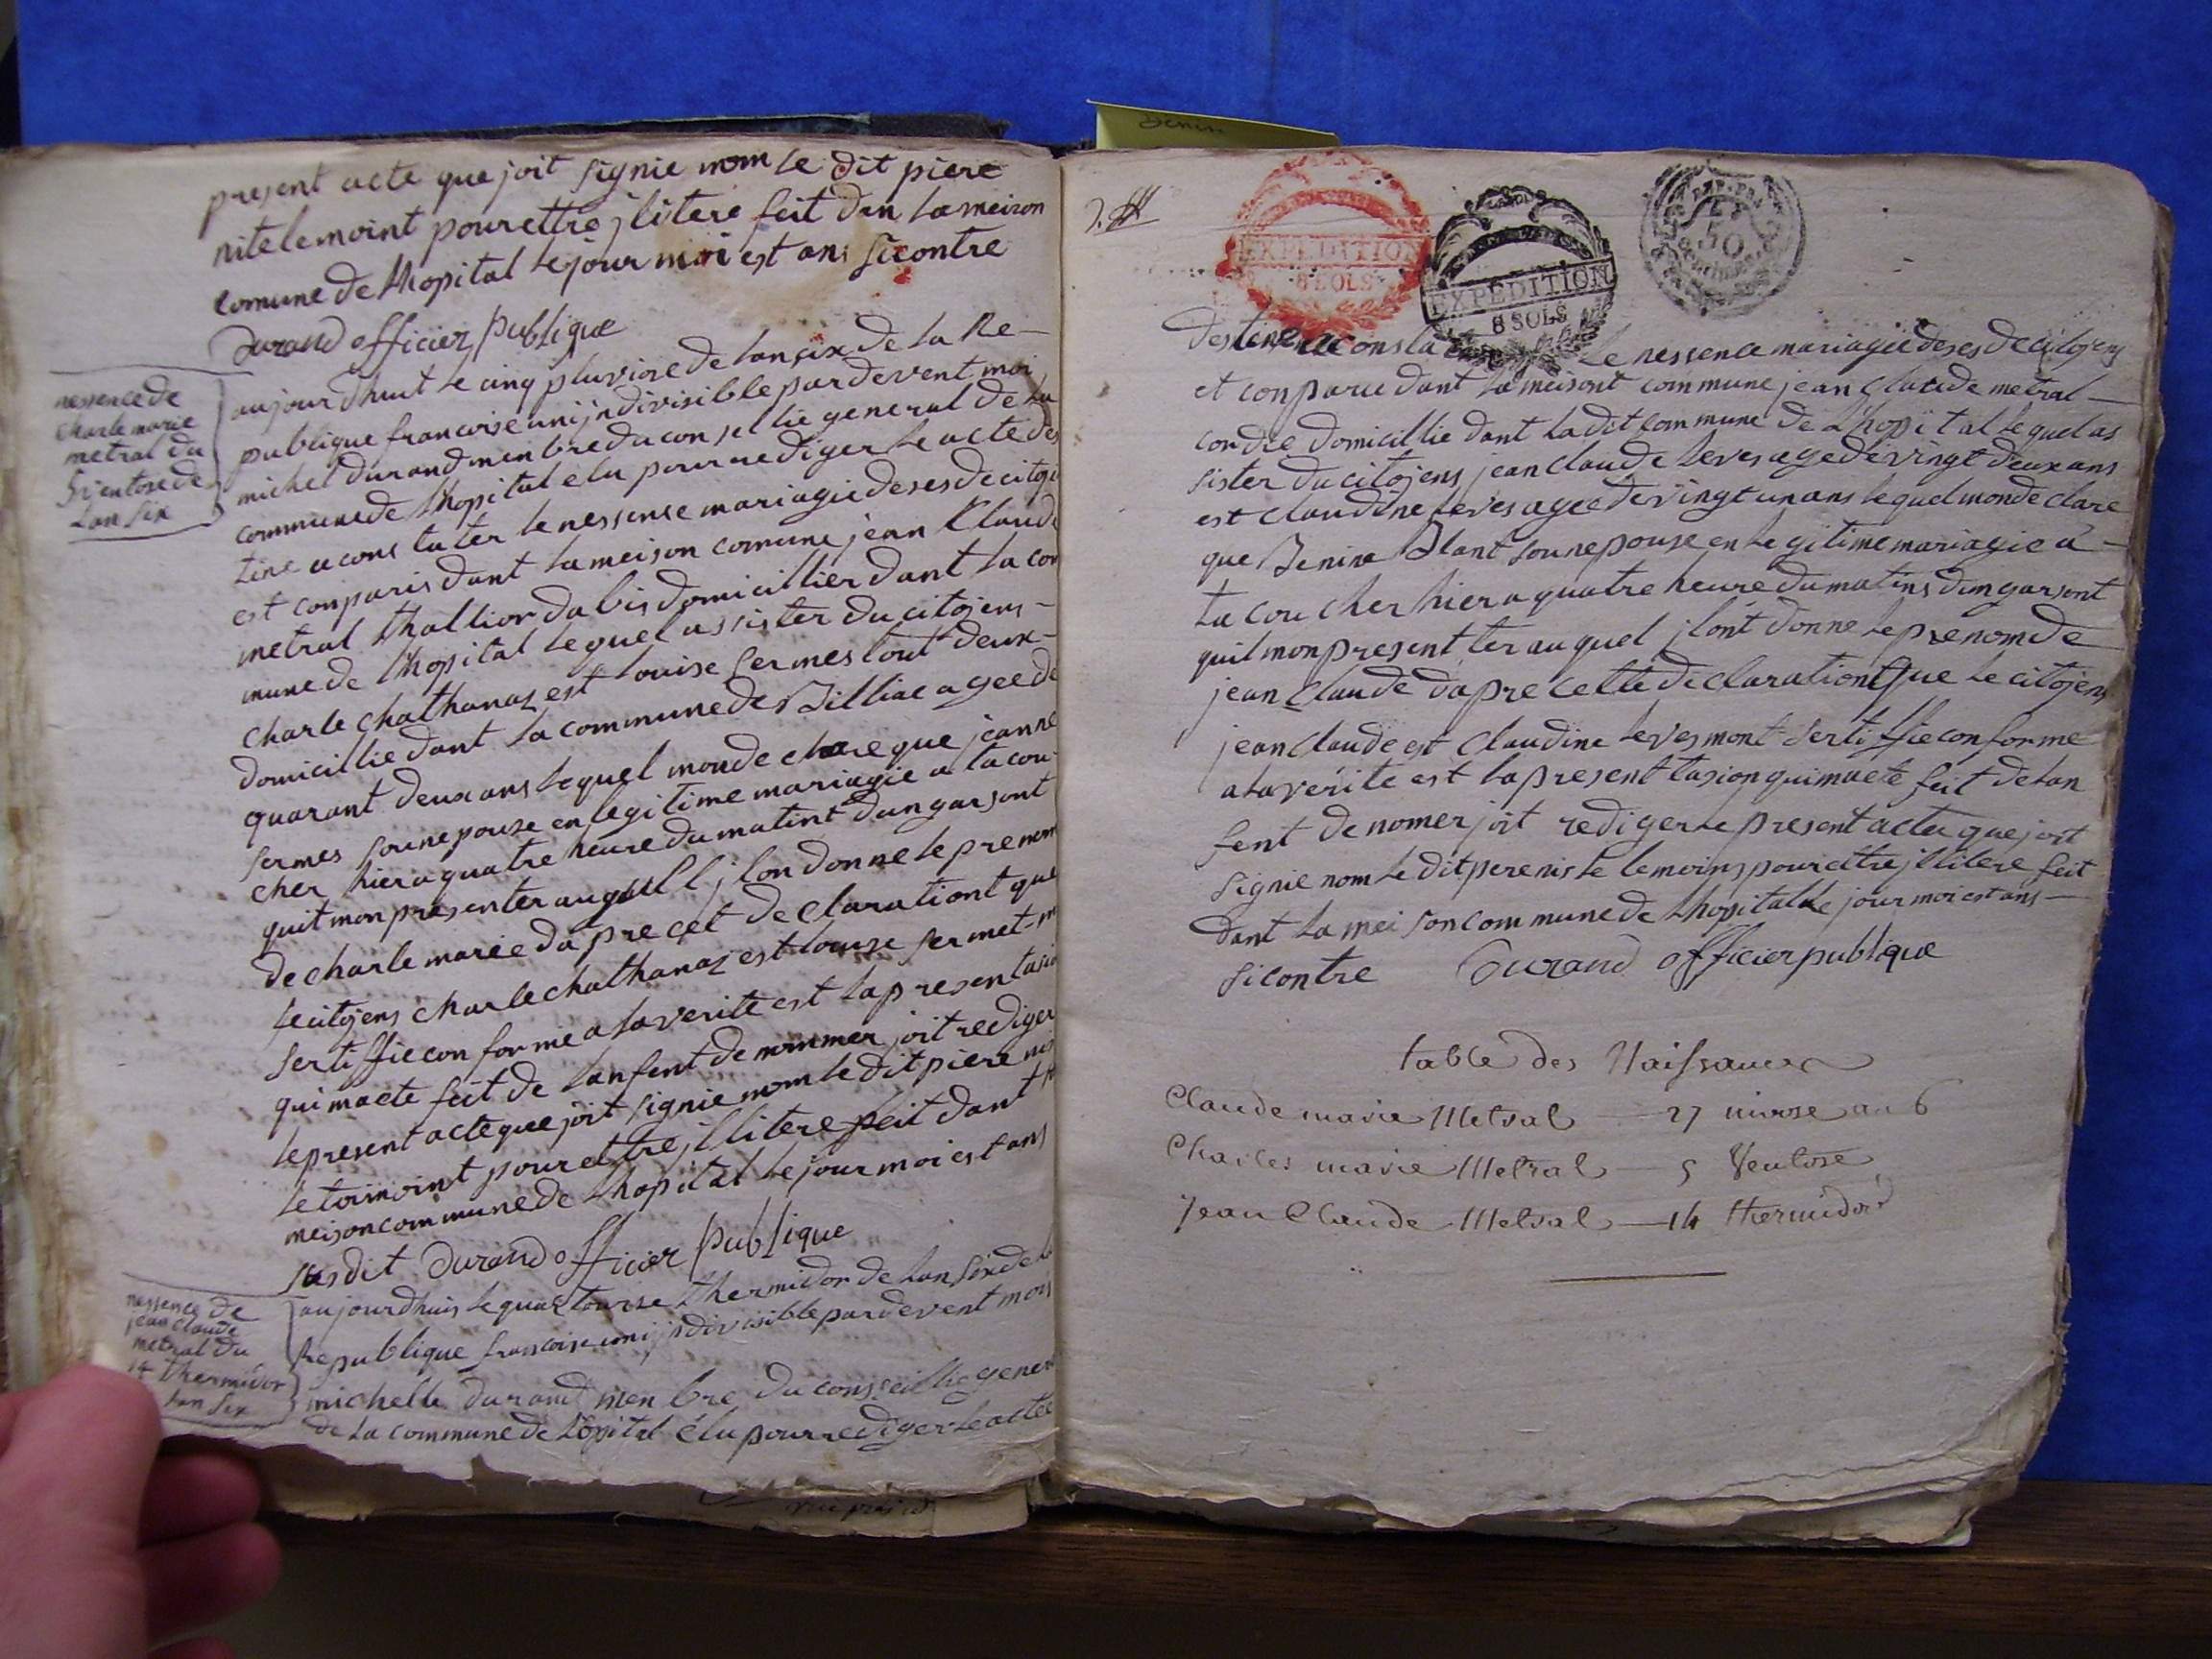 present acte que joit signie nom le dit piere
nite lemoint pour ettre jlitere feit dan la meison
comune de lhopital le jour moi est ans sicontre
Durand officier publique
nessence de
charle marie
metral du
5 ventose de
lan six
aujourdhuit le cinq pluviose de lan six de la Re-
publique francoise uni jndivisible par devent moi
michel durand menbre du conseillie general de la
commune de lhopital elu pour rediger le acte des
tine a constater le nessense mariagie deses de citoje
est conparis dant la meison comune jean Claude
metral thallior dabis domicillier dant la com
mune de lhopital lequel assister du citojens-
charle chathanaz est louise sermes tout deux-
domicillie dant la commune des Billiac agee de
quarant deux ans lequel monde clare que jeanne
sermes son nepouse en legitime mariagie a lacou-
cher hier a quatre heure du matint dun garsont
quit mon presenter auquell jlon donne le prenom
de charle marie dapre cet declarationt que
le citojens charle chathanaz est louise sermet-m
sertiffie con forme a la verite est la presentasio
qui maete feit de lanfent de nommer joit rediger
le present acte que joit signie nom le dit piere nis
le toimoint pour ettre jllitere feit dant
meison commune de lhopital le jour moi est ans
susdit Durand officier publique
nessence de
jean claude
metral du
14 thermidor
lan six
aujourdhuis le quartourse thermidor de lan six de la
Republique francoise uni jndivisible par devent mois
michelle durand menbre du conseillie gener
de la commune de Lopital élu pour rediger le actee
Denin
EXPEDITION
8 SOLS
EXPEDITION
8 SOLS
50
Centimes
destine a consta le nessence mariagie deses de citojens
et conparu dant la meisont commune jean claude metral-
condre domicillie dant ladit commune de Lhopital lequel as
sister du citojens jean claude leves age de vingt deux ans
est claudine leves agee de vingt un ans lequel monde clare
que Benine Blant son nepouse en legitime mariagie a-
la coucher hier a quatre heure du matins dun garsont
quil mon present ter auquel jlont donne le prenom de
jean claude dapre cette declarationt que le citojens
jean claude est claudine leves mont sertiffie conforme
a la vérité est la present tasion qui maete feit de lan
fent de nomer joit rediger le present acte que joit
signie nom le dit pere niste lemoins pour ettre jllitere feit
dant la meison commune de lhopital le jour moi est ans-
sicontre Durand officier publique
table des Naissances
Claude marie Metral 27 nivose an 6
Charles marie Metral 5 Ventose
Jean Claude Metral 14 thermidor